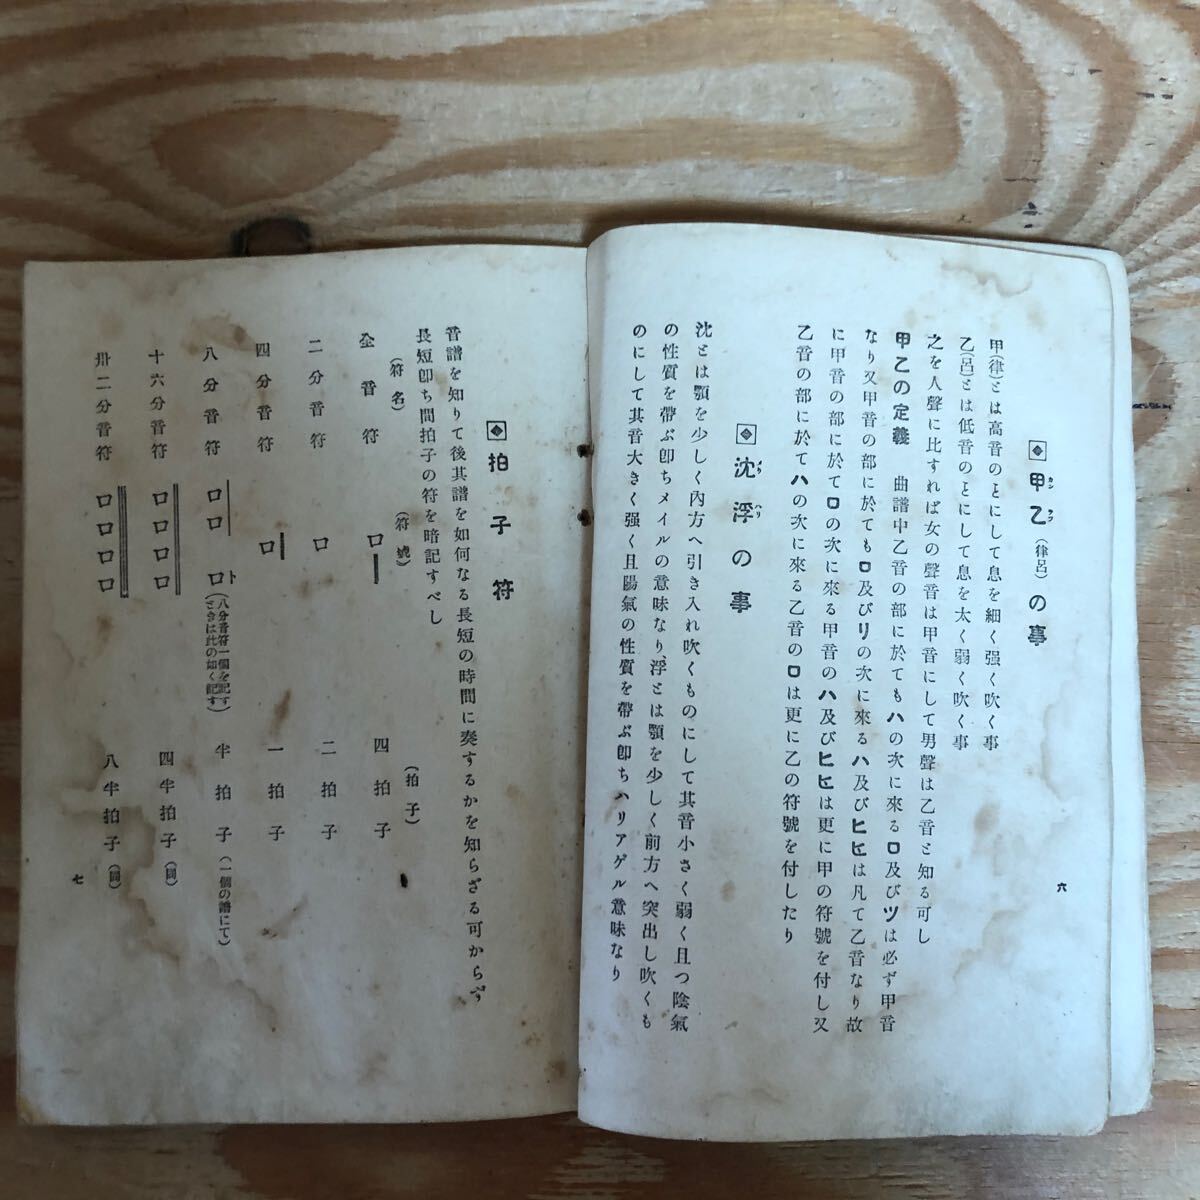 甲乙（律呂）の事
カン
オツ
甲（律）とは高音のことにして息を細く强く吹く事
乙（呂）とは低音のことにして息を太く弱く吹く事
之を人聲に比すれば女の聲音は甲音にして男聲は乙音と知る可し
甲乙の定義　曲譜中乙音の部に於てもハの次に來るロ及びツは必ず甲音
なり又甲音の部に於てもロ及びリの次に來るハ及びヒヒは凡て乙音なり故
に甲音の部に於てロの次に來る甲音のハ及びヒヒは更に甲の符號を付し又
乙音の部に於てハの次に來る乙音のロは更に乙の符號を付したり
沈浮の事
メリ
カリ
沈とは顎を少しく內方へ引き入れ吹くものにして其音小さく弱く且つ陰氣
の性質を帶ぶ卽ちメイルの意味なり、浮とは顎を少しく前方へ突出し吹くも
のにして其音大きく强く且陽氣の性質を帶ぶ卽ちハリアゲル意味なり
六
拍子符
音譜を知りて後其譜を如何なる長短の時間に奏するかを知らざる可からず
長短卽ち間拍子の符を暗記すべし
（符名）　（符號）　（拍子）
全音符　ロ　四拍子
二分音符　ロ　二拍子
四分音符　ロ　一拍子
八分音符　ロロ　ロト（八分音符一個を記すときは此の如く記す）　半拍子（一個の譜にて）
十六分音符　ロロロロ　四半拍子（同）
卅二分音符　ロロロロ　八半拍子（同）
七